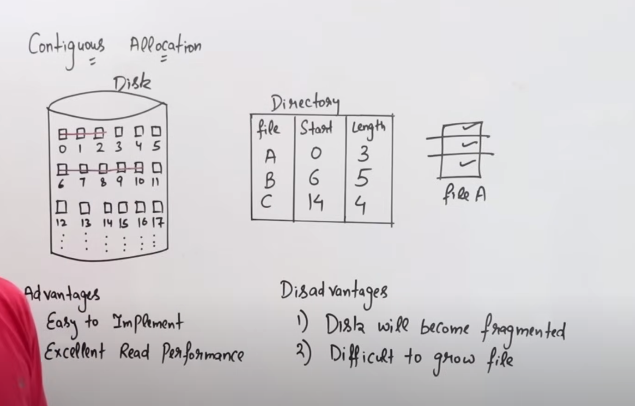 Contiguous Allocation
Disk
0 1 2 3 4 5
6 7 8 9 10 11
12 13 14 15 16 17
Directory
file Start Length
A 0 3
B 6 5
C 14 4
file A
Advantages
Easy to Implement
Excellent Read Performance
Disadvantages
1) Disk will become fragmented
2) Difficult to grow file